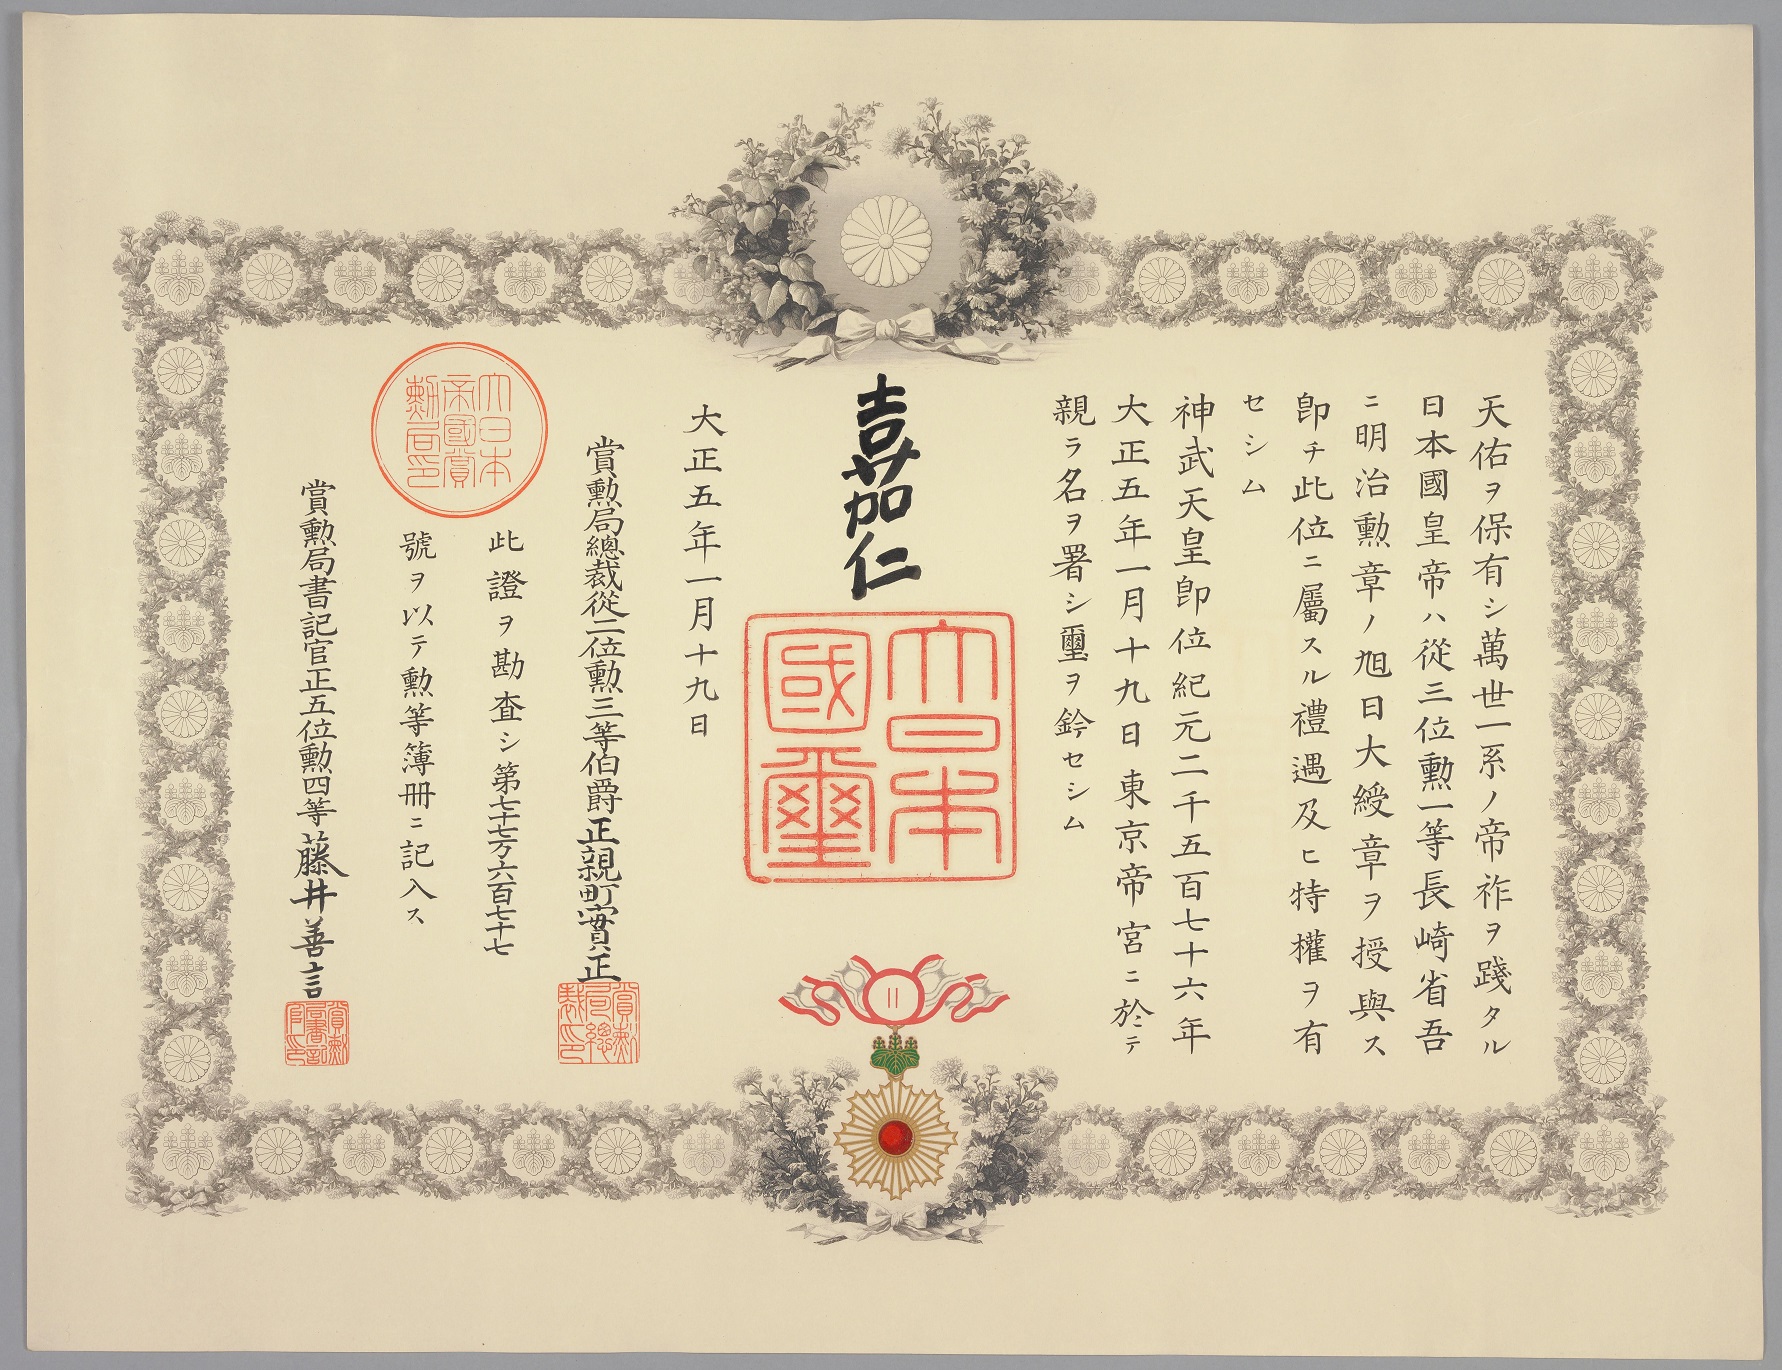 天佑ヲ保有シ萬世一系ノ帝祚ヲ踐タル
日本國皇帝ハ從三位勲一等長崎省吾
ニ明治勲章ノ旭日大綬章ヲ授與ス
卽チ此位ニ屬スル禮遇及ヒ特權ヲ有
セシム
神武天皇卽位紀元二千五百七十六年
大正五年一月十九日東京帝宮ニ於テ
親ラ名ヲ署シ璽ヲ鈐セシム
嘉仁
大日本
國璽
大正五年一月十九日
賞勲局總裁從二位勲三等伯爵正親町實正
賞勲局總裁印
此證ヲ勘査シ第七十七万六百七十七
號ヲ以テ勲等簿冊ニ記入ス
大日本帝國賞勲局印
賞勲局書記官正五位勲四等藤井善言
賞勲局書記官印